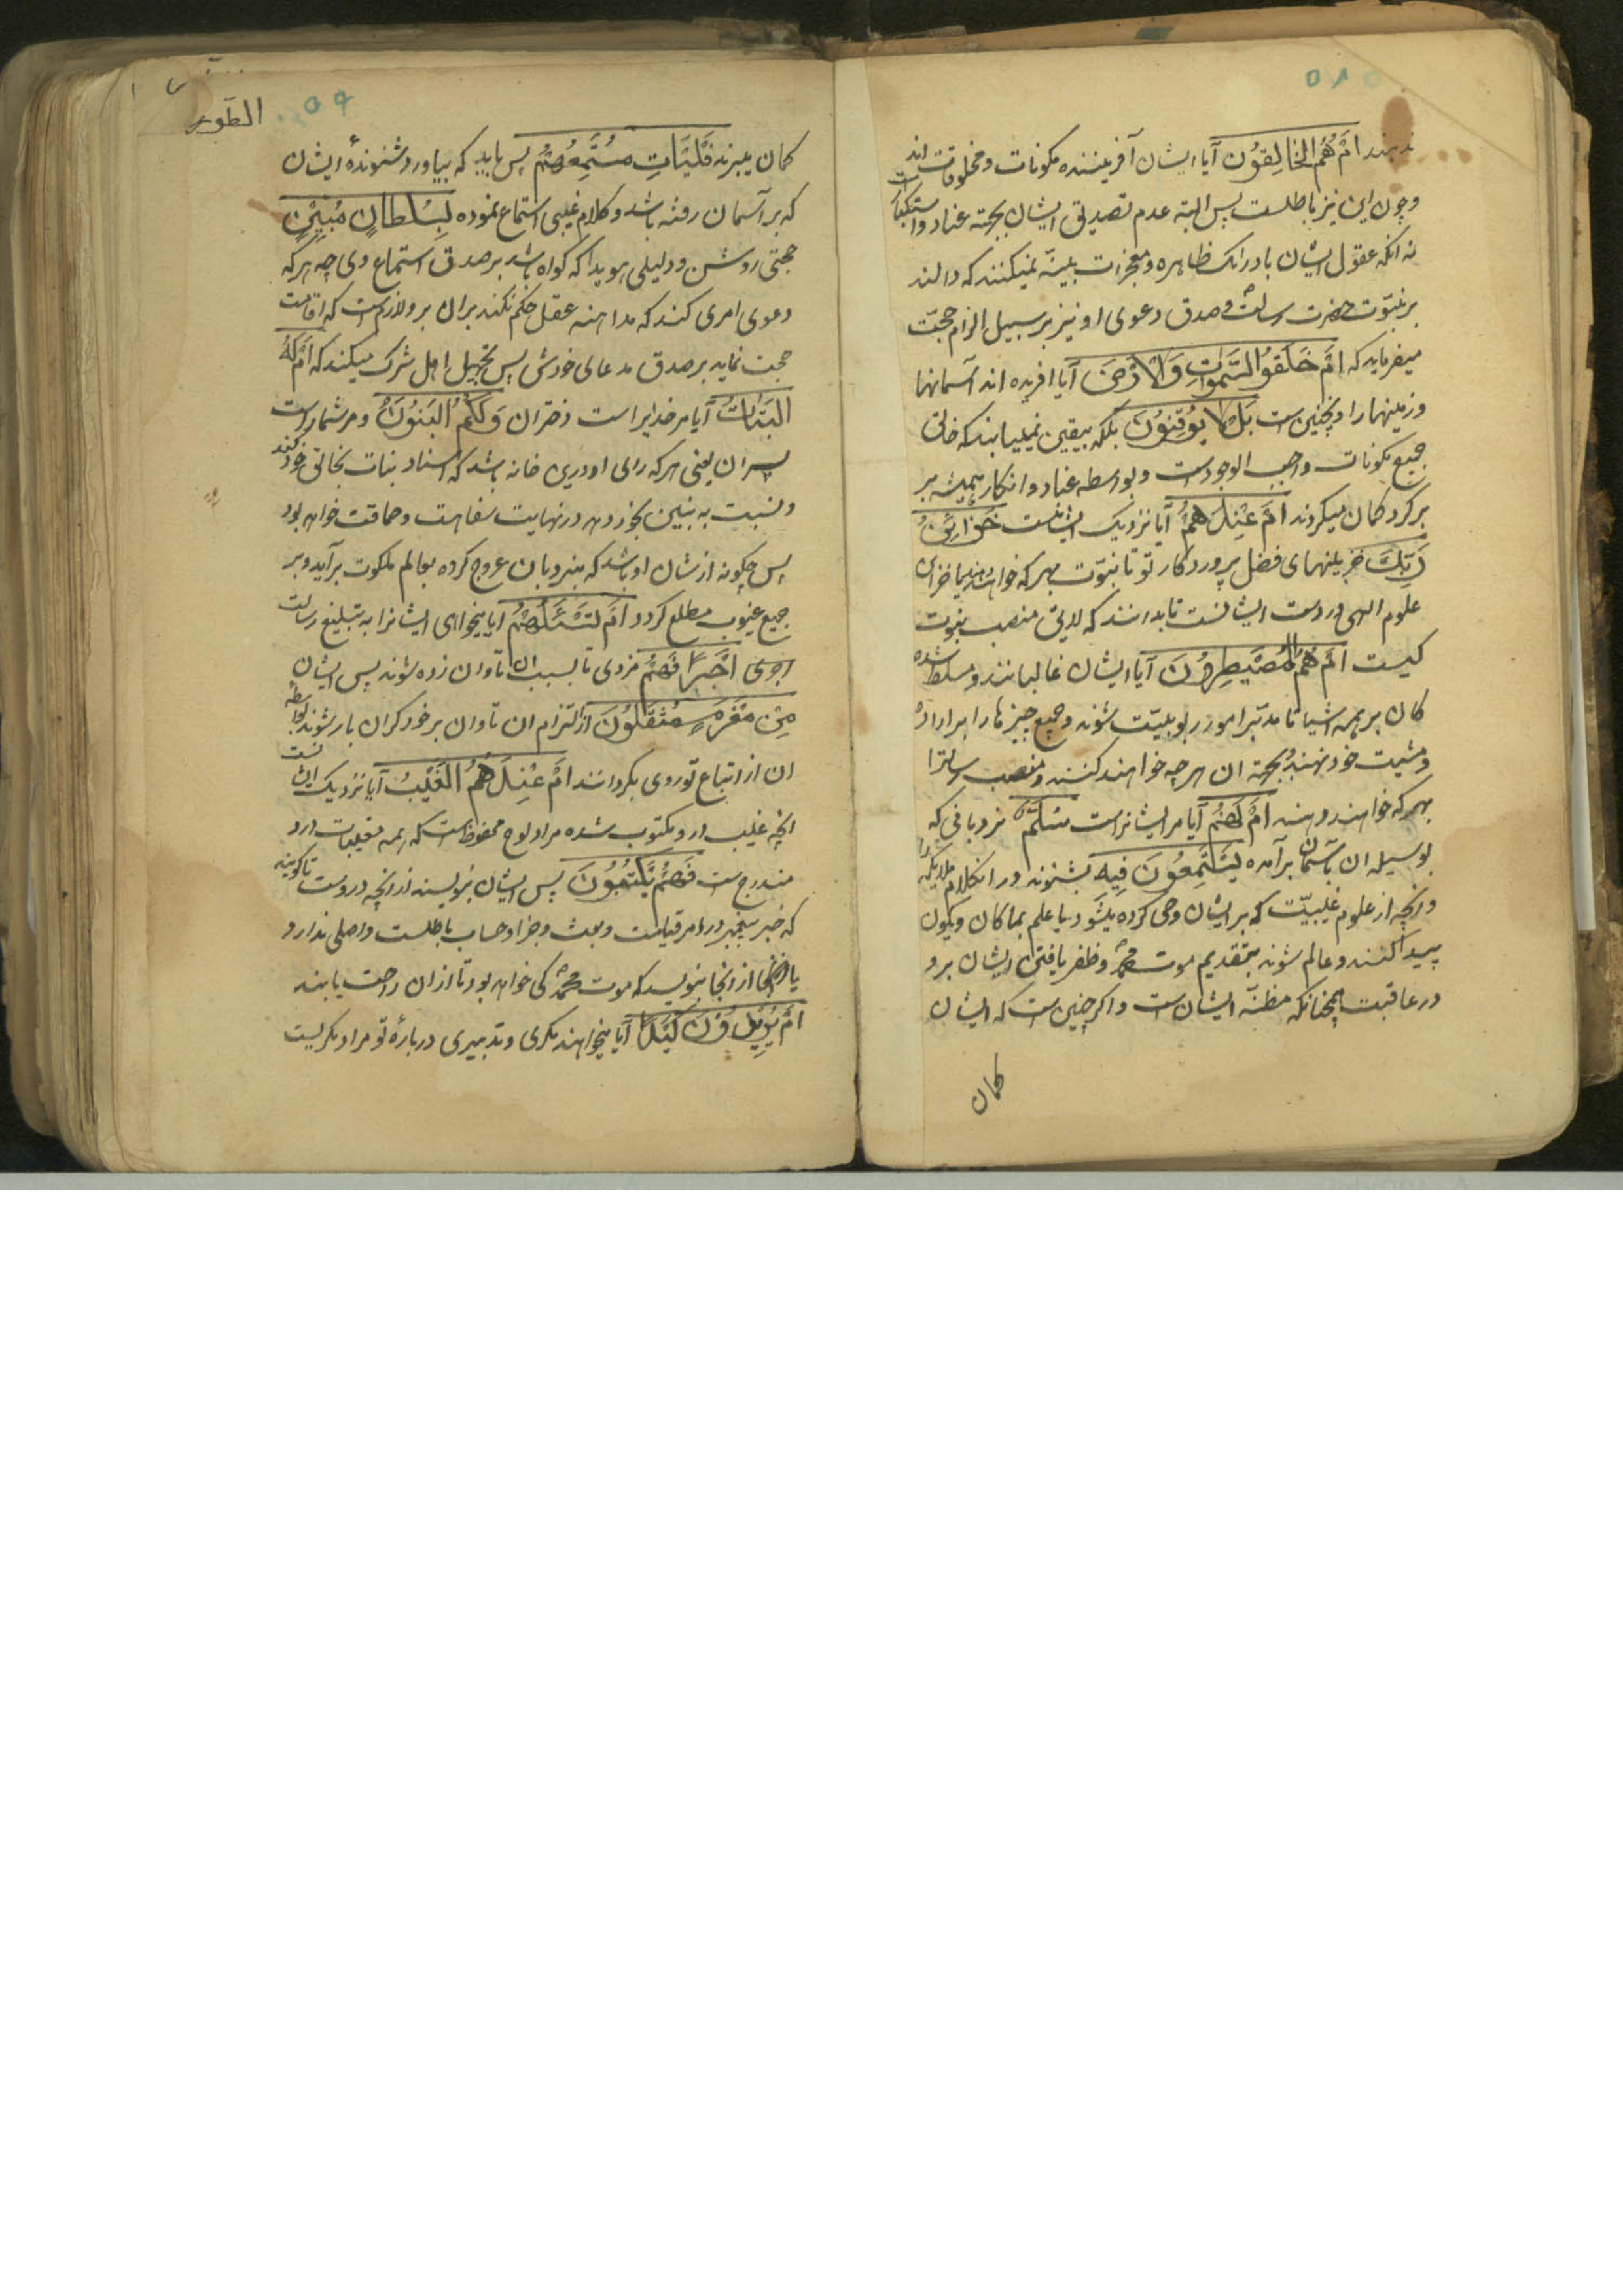 ندبند اَمْ هُمُ الخالِقوُن آیا ایشان آفریننده مکونات و مخلوقات اند
و چون این نیز باطلست پس البته عدم تصدیق ایشان بجهة عناد و استکبار است
نه انکه عقول ایشان بادراک ظاهره و معجزات بینّه نمیکنند که دالند
بر نبوّت حضرت رسالت و صدق دعوی او نیز بر سبیل الزام حجّت
میفرماید که اَمْ خَلَقوُا السَّمٰواتِ وَالْاَرْضَ آیا افریده اند آسمانها
و زمینها را و نچنین است بَلْ لا یوُقِنوُنَ بلکه بیقین نمییابند که خالق
جمیع مکونات واجب الوجود است و بواسطه عناد و انکار همیشه بر
بر کرد کمان میکردند اَمْ عِنْدَهُمْ آیا نزدیک ایشانست خَزائِنُ
رَبِّکَ خزینهای فضل پروردکار تو تا نبوّت بهر که خواهند دهند یا خزاین
علوم الهی در دست ایشانست تا بدانند که لایق منصب نبوت
کیست اَمْ هُمُ الْمُصَیْطِروُنَ آیا ایشان غالبانند و مسلط شده
کان بر همه اشیا تا مدتبر امور ربوبیّت شوند و جمیع چیزها را بر اراده
و مشیت خود نهند و بجهة ان هر چه خواهند کنند و منصب رسالترا
بهر که خواهند دهند اَمْ لَهُمْ آیا مر ایشانراست سُلَّمٌ نردبانی که
بوسیله ان بآسمان برآمده یَسْتَمِعوُنَ فِیهِ بشنوند در ان کلام ملایکه را
و انچه از علوم غیبیّت که بر ایشان وحی کرده میشود یا علم بما کان و یکون
پیدا کنند و عالم شوند بتقدیم موت محمّد و ظفر یافتن ایشان برو
در عاقبت همچنانکه مظنّه ایشان است و اکر چنین است که ایشان
کمان
الطّور
کمان میبرند فَلْیَاْتِ مُسْتَمِعُهُمْ پس باید که بیاورد شنونده ایشان
که بر آسمان رفته باشد و کلام غیبی استماع نموده بِسُلْطانٍ مُبینٍ
حجتی روشن و دلیلی هویدا که کواه باشد بر صدق استماع وی چه هر که
دعوی امری کند که مداهنه عقل حکم نکند بران برو لازم است که اقامت
حجت نماید بر صدق مدعای خودش پس تجهیل اهل شرک میکند که اَمْ لَهُ
الْبَناتُ آیا مر خدایراست دختران وَلَکُمُ الْبَنوُنَ و مر شماراست
پسران یعنی هر که رای او درین خانه باشد که اسناد بنات بخالق خود کند
و نسبت به بنین بخود دهد در نهایت سفاهت و حماقت خواهد بود
پس چکونه از شان او باشد که بنردبان عروج کرده بعالم ملکوت برآید و بر
جمیع غیوب مطلع کردد اَمْ تَسْئَلُهُمْ آیا میخواهی ایشانرا به تبلیغ رسالت
اجری اَجْراً فَهُمْ مزدی تا بسبب ان تاوان زده شوند پس ایشان
مِنْ مَغْرَمٍ مُثْقَلوُنَ از التزام ان تاوان بر خود کران بار شوند بواسطهٔ
ان از اتباع تو روی بکردانند اَمْ عِنْدَهُمُ الْغَیْبُ آیا نزدیک ایشانست
انچه غیب در و مکتوب شده مراد لوح محفوظست که همه مغیبات درو
مندرج ست فَهُمْ یَکْتُبوُنَ پس ایشان نویسند از انچه دروست تا کویند
که خبر پیغمبر در امر قیامت و بعث و جزا و حساب باطلست و اصلی ندارد
یا از انجا بنویسد که موت محمّد کی خواهد بود تا از ان راحت یابند
اَمْ یُریدوُنَ کَیْداً آیا میخواهند مکری و تدبیری در باره تو مراد مکریست